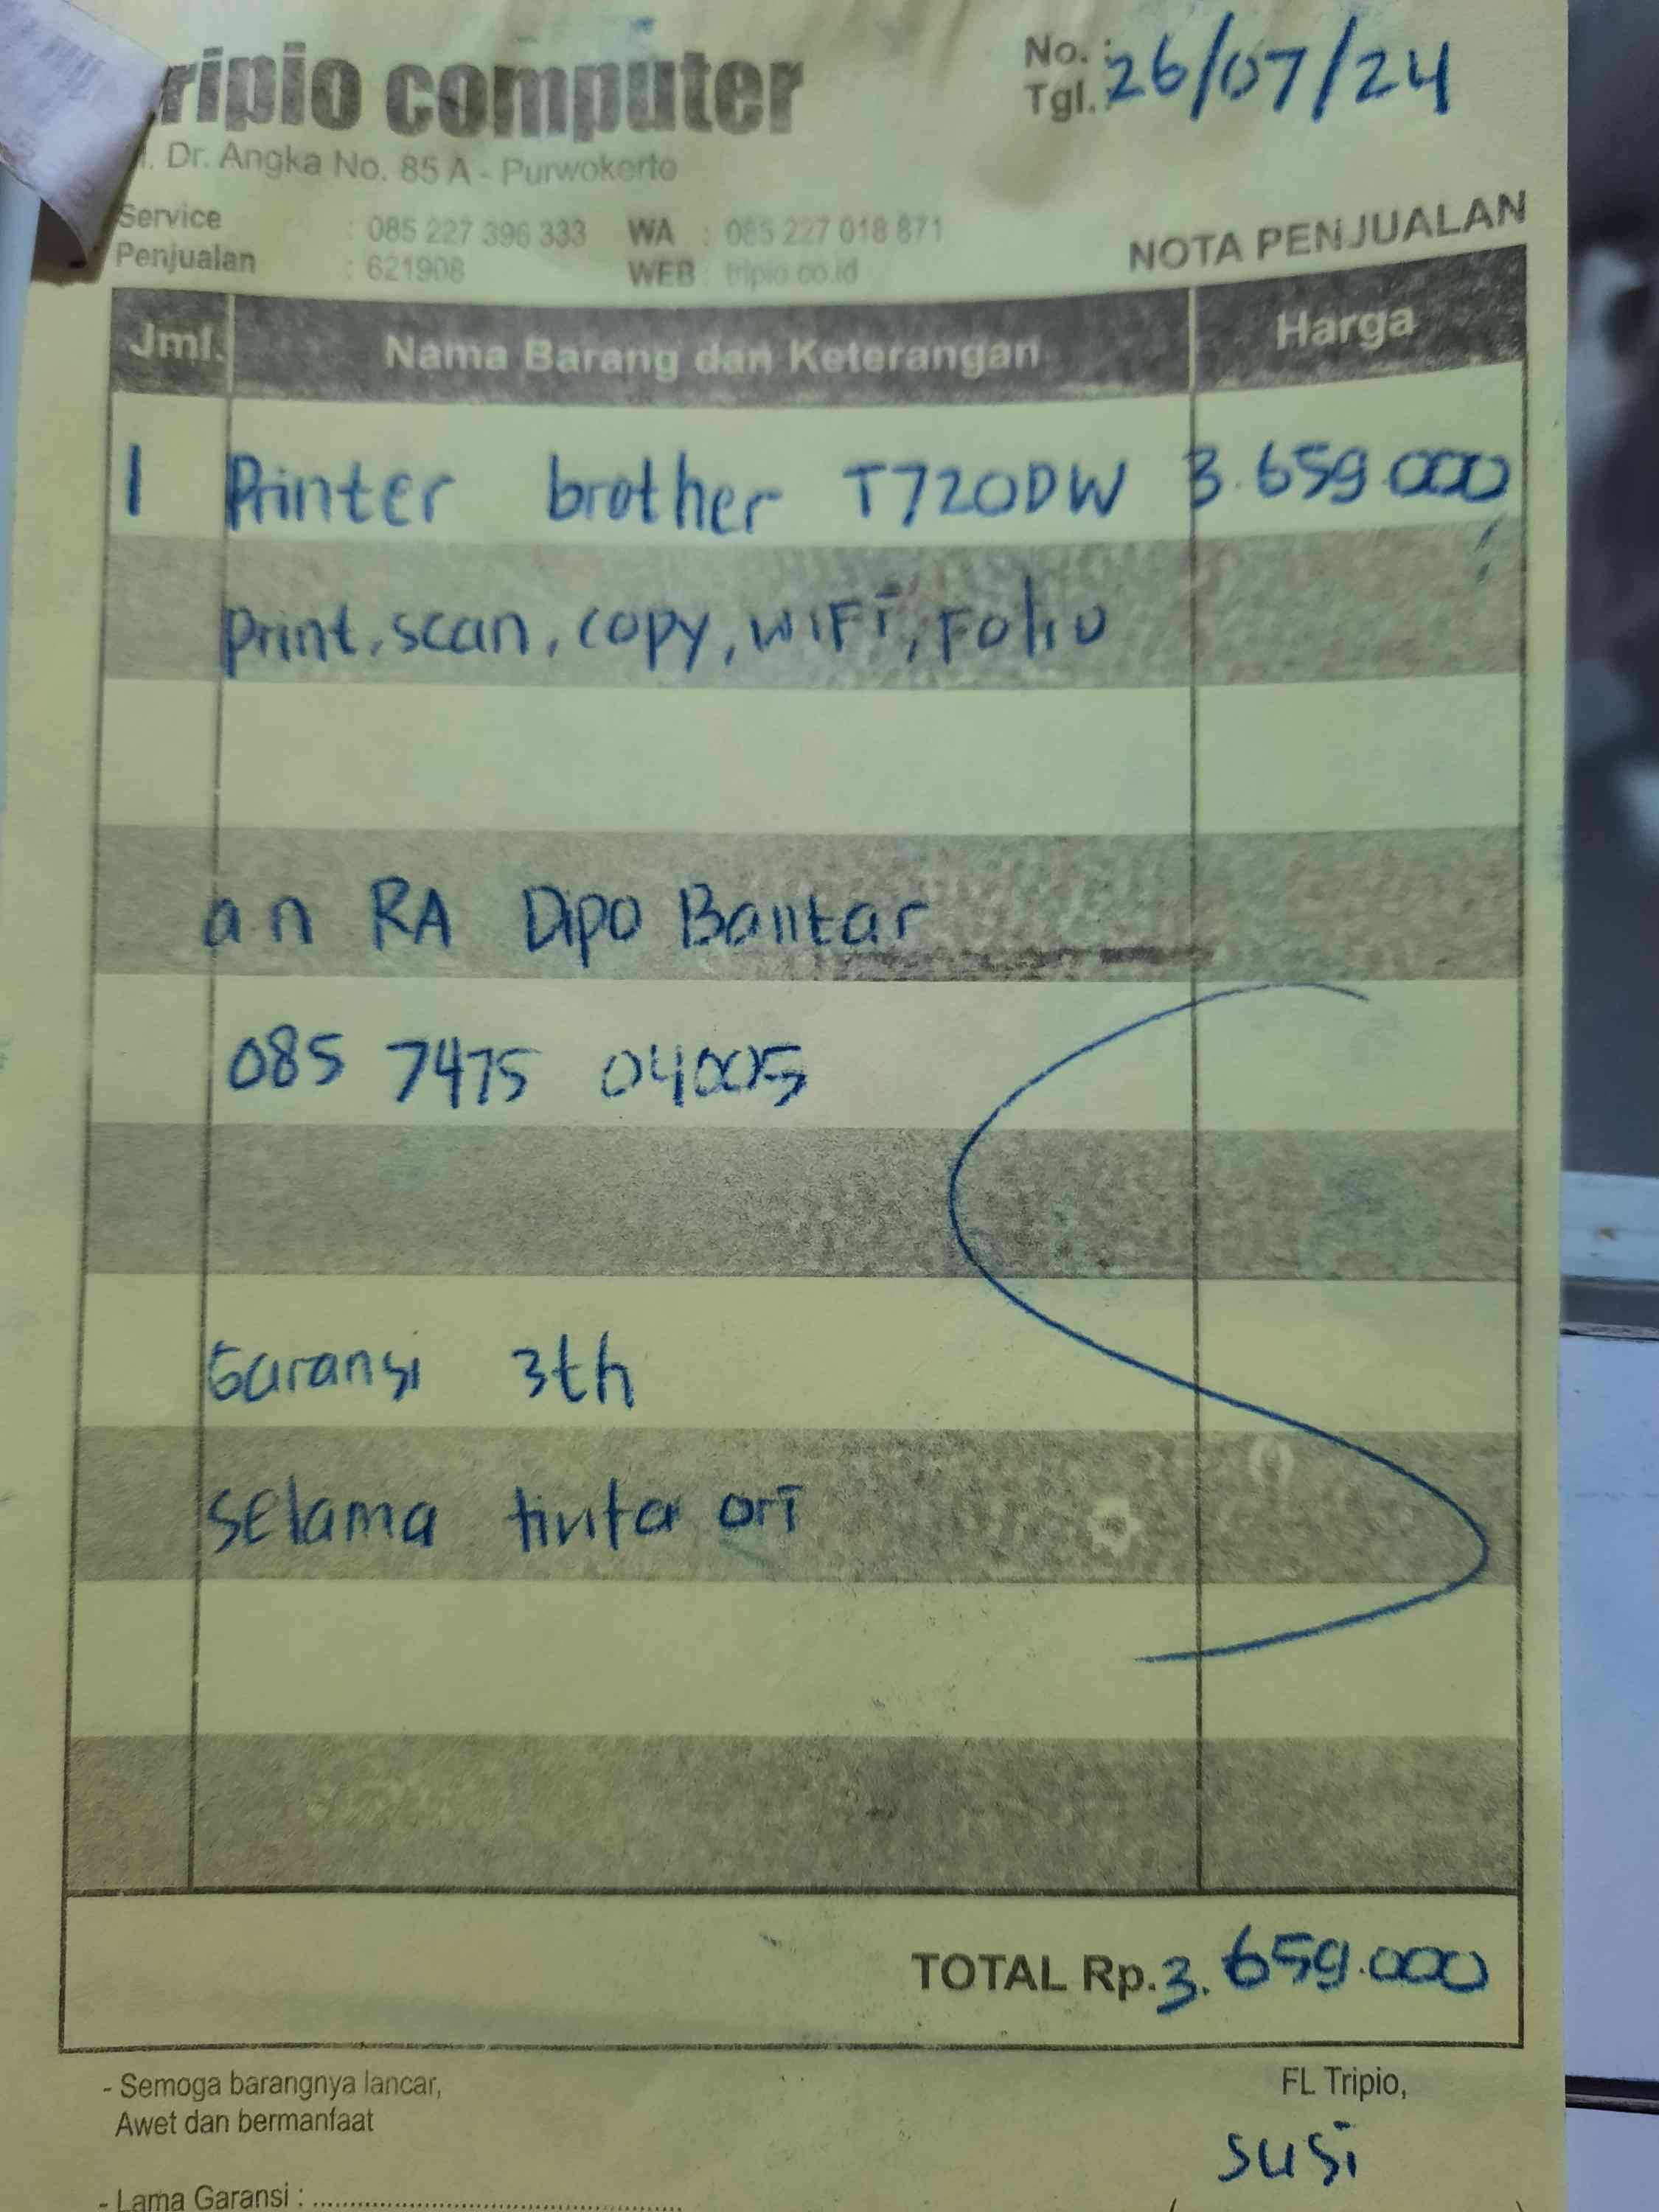 tripio computer
No. :
Tgl. : 26/07/24
Jl. Dr. Angka No. 85 A - Purwokerto
Service : 085 227 396 333 WA : 085 227 018 871
Penjualan : 621908 WEB : tripio.co.id
NOTA PENJUALAN
Jml. Nama Barang dan Keterangan Harga
1 Printer brother T720DW 3.659.000
print, scan, copy, WiFi, Folio
an RA Dipo
085 7475 04005
Garansi 3th
selama tinta ori
TOTAL Rp. 3.659.000
- Semoga barangnya lancar,
Awet dan bermanfaat
FL Tripio,
susi
- Lama Garansi : ........................